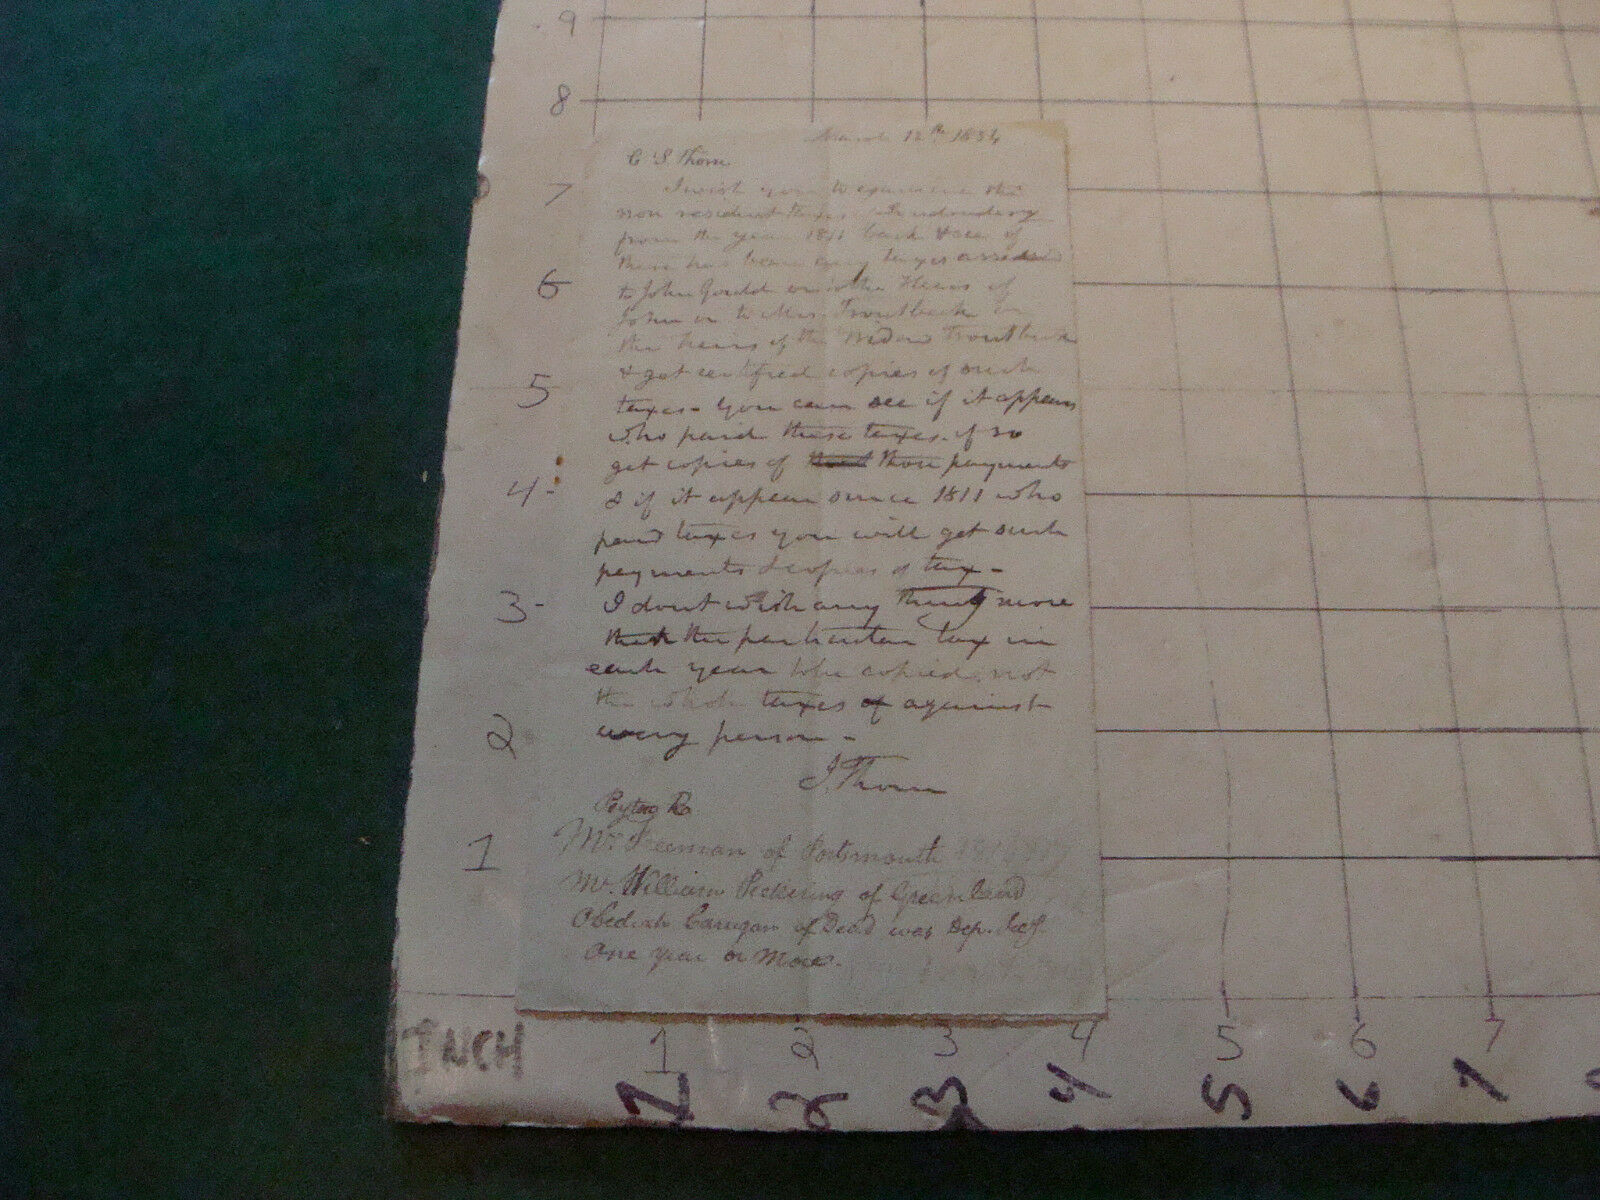 9
8
7
6
5
4-
3-
2
1
March 12th 1834
C S. Thom
I wish you to examine the
non resident taxes
from the year 1811 back & see if
there has been any taxes assessed
to John Gould or to the Heirs of
John or to Mrs. Troutbeck or
the heirs of the Widow Troutbeck
& get certified copies of such
taxes - You can see if it appears
who paid these taxes. if so
get copies of those payments
& if it appear since 1811 who
paid taxes you will get such
payments & copies of tax -
I dont wish any thing more
than the particular tax in
each year to be copied, not
the whole taxes of against
every person -
J. Thom
Mr. Freeman of Portsmouth
Mr. William Pickering of Greenland
Obediah Carrigan of Dead was Dep. Secy.
One year or More.
INCH
1 2 3 4 5 6 7
1 2 3 4 5 6 7